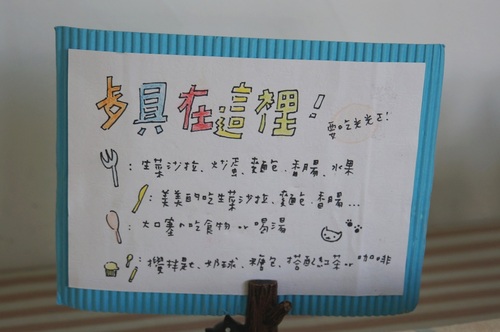 歺具在這裡！
要吃光光ㄛ！
：生菜沙拉、炒蛋、麵飽、香腸、水果
：美美的吃生菜沙拉、麵飽、香腸…
：大口塞の吃食物 or 喝湯
：攪拌匙、奶球、糖包、搭配紅茶 or 咖啡